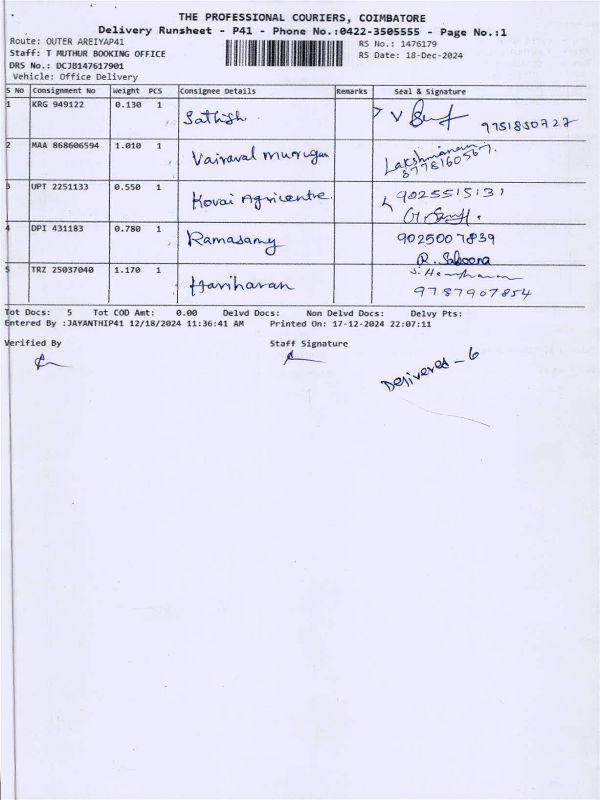 THE PROFESSIONAL COURIERS, COIMBATORE
Delivery Runsheet - P41 - Phone No.:0422-3505555 - Page No.:1
Route: OUTER AREIYAP41
RS No.: 1476179
Staff: T MUTHUR BOOKING OFFICE
RS Date: 18-Dec-2024
DRS No.: DCJB147617901
Vehicle: Office Delivery
S No Consignment No Weight PCS Consignee Details Remarks Seal & Signature
1 KRG 949122 0.130 1 Sathish 9751850727
2 MAA 868606594 1.010 1 Vairaval murugan Lakshmanan
8778160567
3 UPT 2251133 0.550 1 Kovai Agricentre 9025515131
4 DPI 431183 0.780 1 Ramasamy 9025007839
R. Saboona
5 TRZ 25037040 1.170 1 Hariharan S. Hariharan
9787907854
Tot Docs: 5 Tot COD Amt: 0.00 Delvd Docs: Non Delvd Docs: Delvy Pts:
Entered By :JAYANTHIP41 12/18/2024 11:36:41 AM Printed On: 17-12-2024 22:07:11
Verified By Staff Signature
Delivered - 6